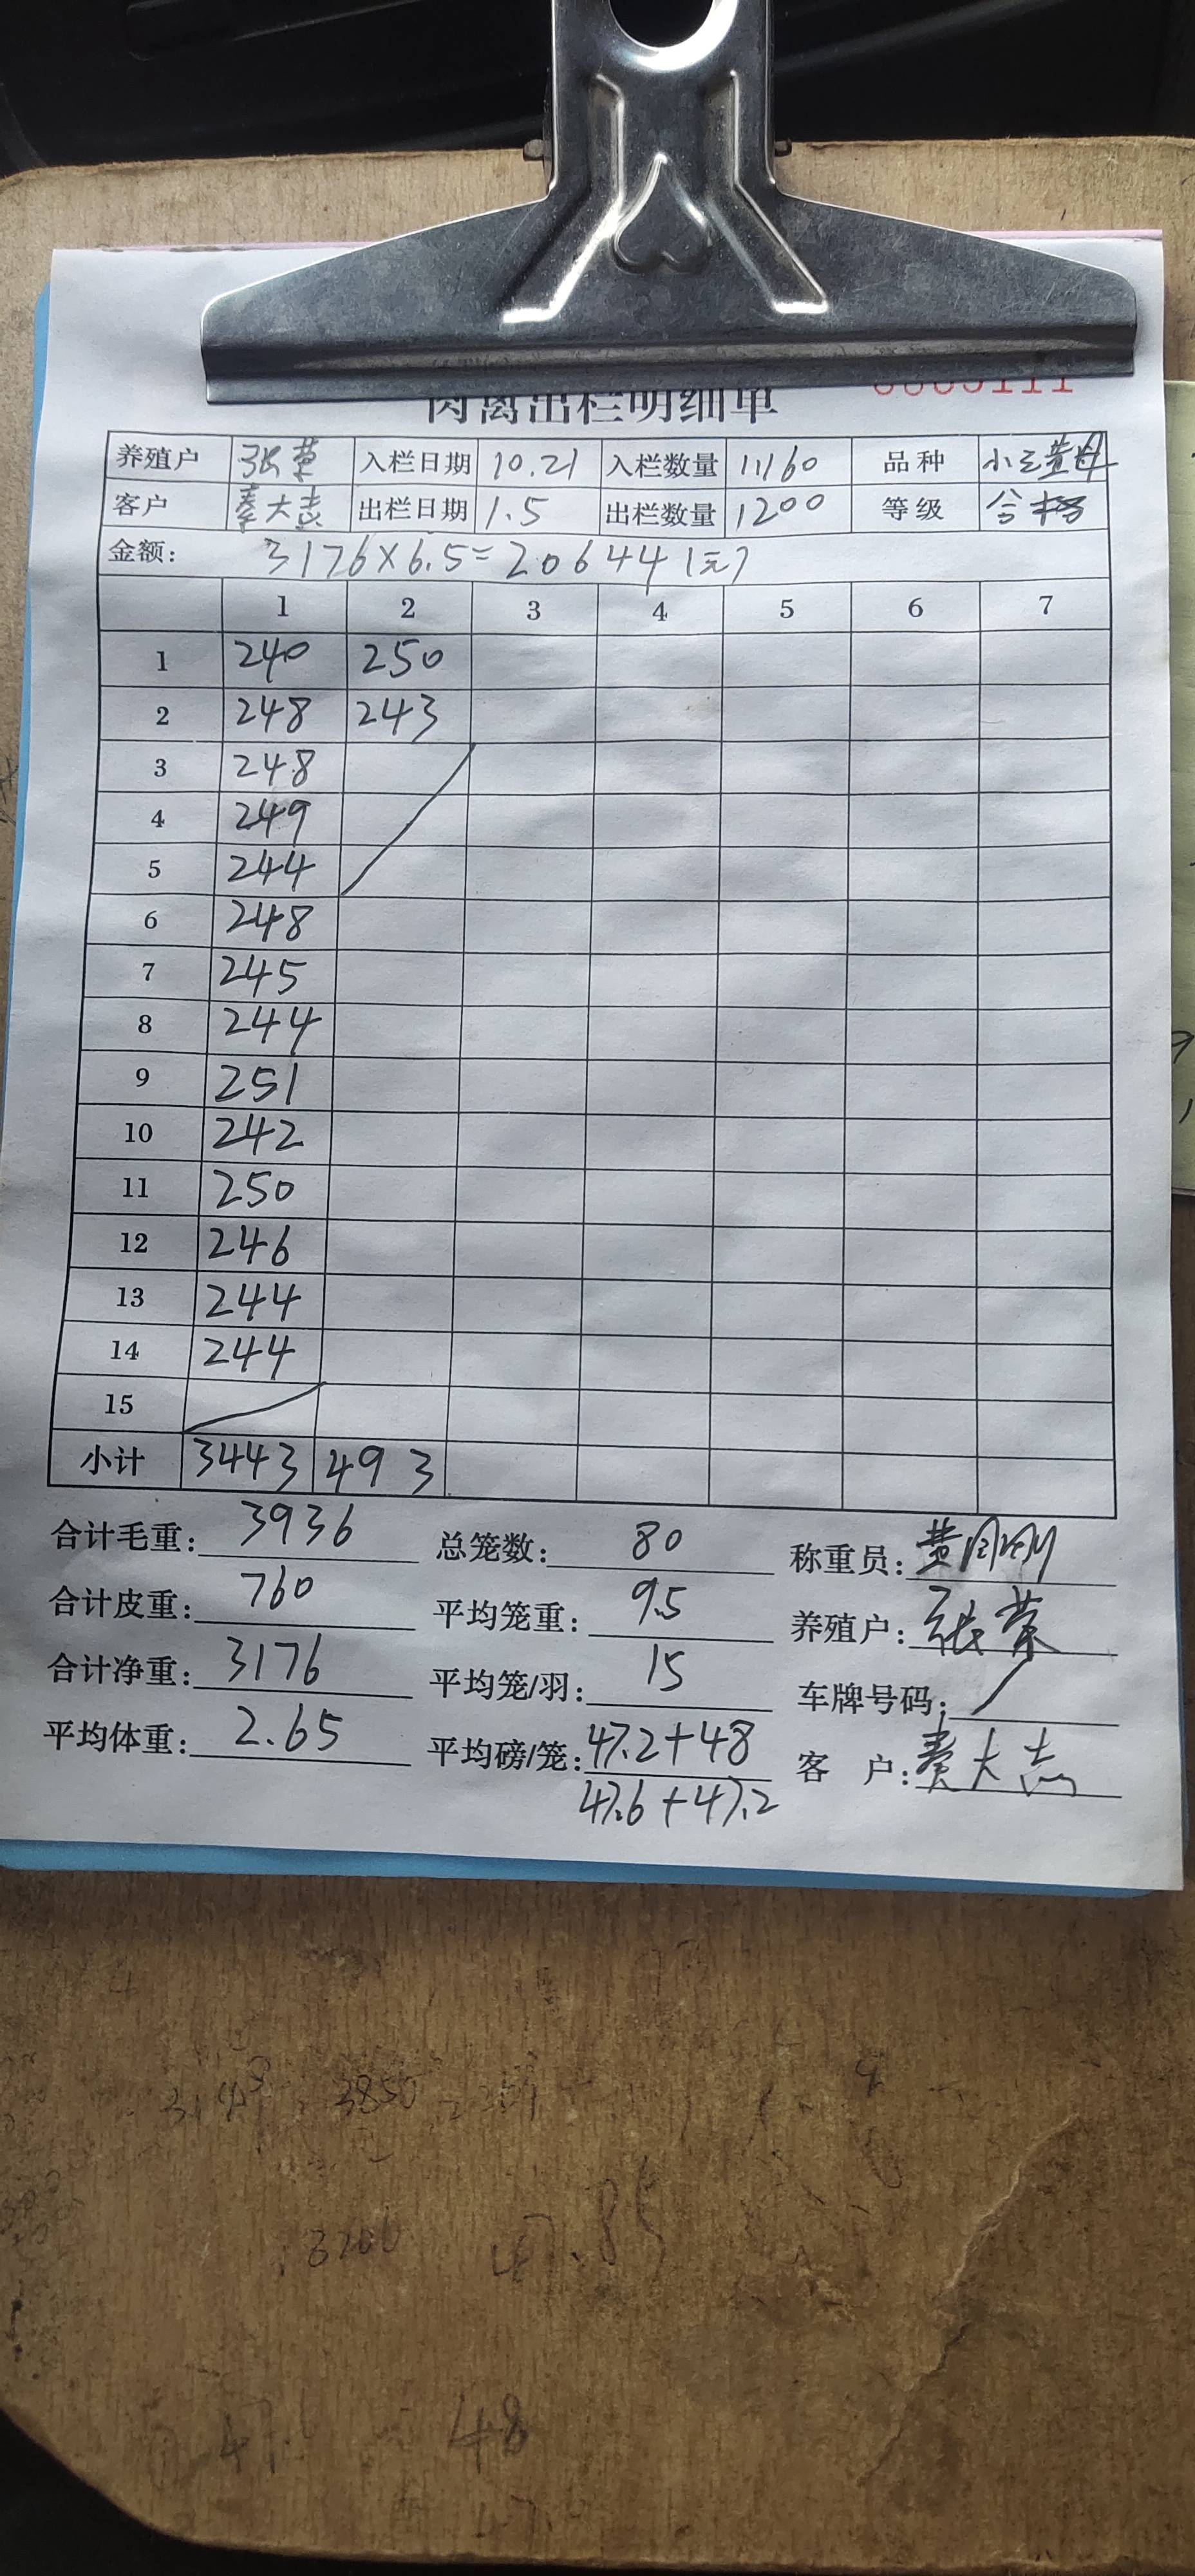 肉禽出栏明细单
养殖户 张荣 入栏日期 10.21 入栏数量 11160 品种 小三黄母
客户 秦大志 出栏日期 1.5 出栏数量 1200 等级 合格
金额: 3176×6.5=20644(元)
1 2 3 4 5 6 7
1 240 250
2 248 243
3 248
4 249
5 244
6 248
7 245
8 244
9 251
10 242
11 250
12 246
13 244
14 244
15
小计 3443 493
合计毛重: 3936 总笼数: 80 称重员: 黄刚刚
合计皮重: 760 平均笼重: 9.5 养殖户: 张荣
合计净重: 3176 平均笼/羽: 15 车牌号码:
平均体重: 2.65 平均磅/笼: 47.2+48 客 户: 秦大志
47.6+47.2
3850
48